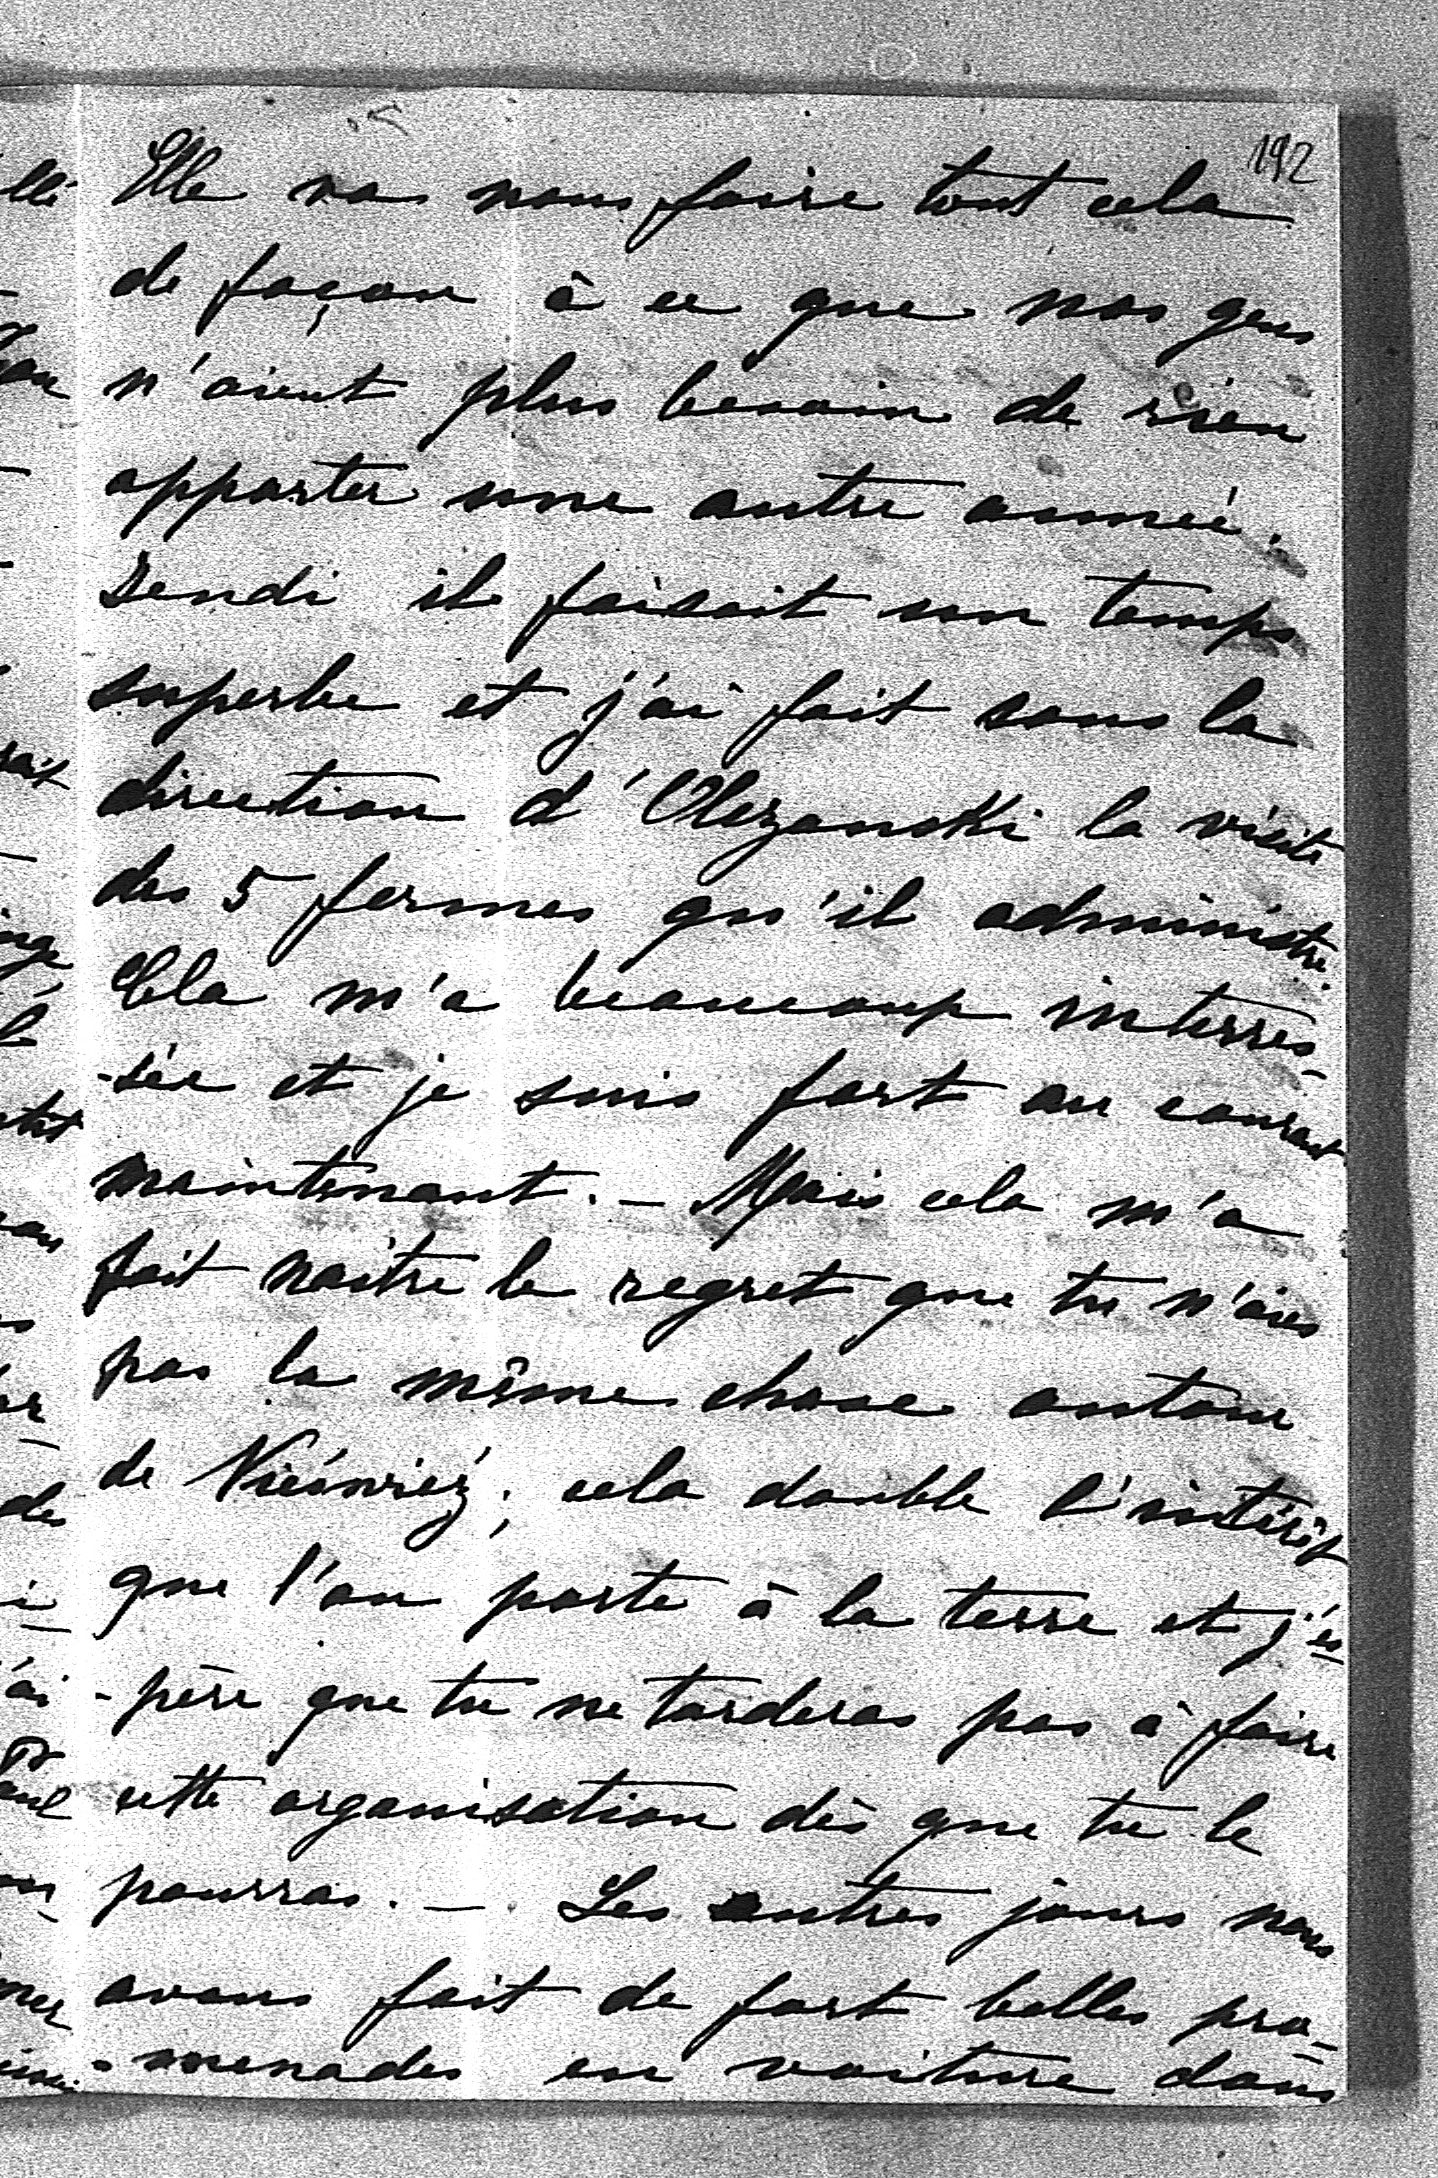 192
Elle va nous faire tout cela
de façon à ce que nos gens
n'aient plus besoin de rien
apporter une autre année.
il faisait un temps
superbe et j'ai fait sous la
direction d'Olezanski la visite
des 5 fermes qu'il administre.
Cela m'a beaucoup interres-
-sée et je suis fort au courant
maintenant. - Mais cela m'a
fait naître le regret que tu n'aies
pas la même chose autour
de ; cela double l'intérêt
que l'on porte à la terre et j'es
-père que tu ne tarderas pas à faire
cette organisation dès que tu le
pourras. - Les autres jours nous
avons fait de fort belles pro-
-menades en voiture dans